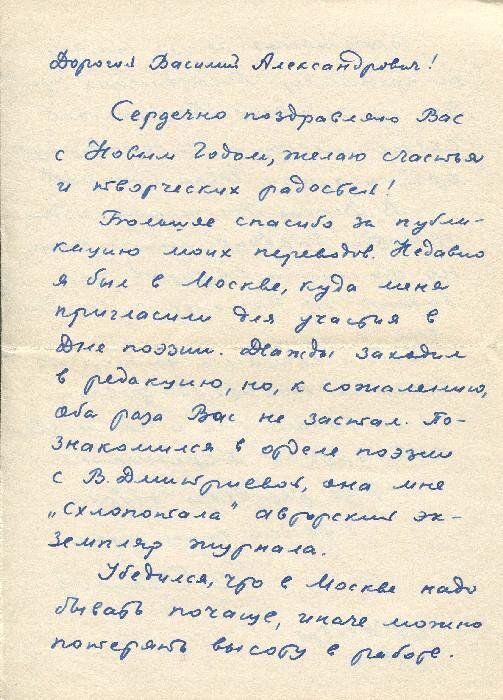 Дорогой Василий Александрович!
Сердечно поздравляю Вас
с Новым Годом, желаю счастья
и творческих радостей!
Большое спасибо за публи-
кацию моих переводов. Недавно
я был в Москве, куда меня
пригласили для участия в
Дне поэзии. Дважды заходил
в редакцию, но, к сожалению,
оба раза Вас не застал. По-
знакомился в отделе поэзии
с В. Дмитриевой, она мне
„схлопотала" авторский эк-
земпляр журнала.
Убедился, что в Москве надо
бывать почаще, иначе можно
потерять высоту в работе.